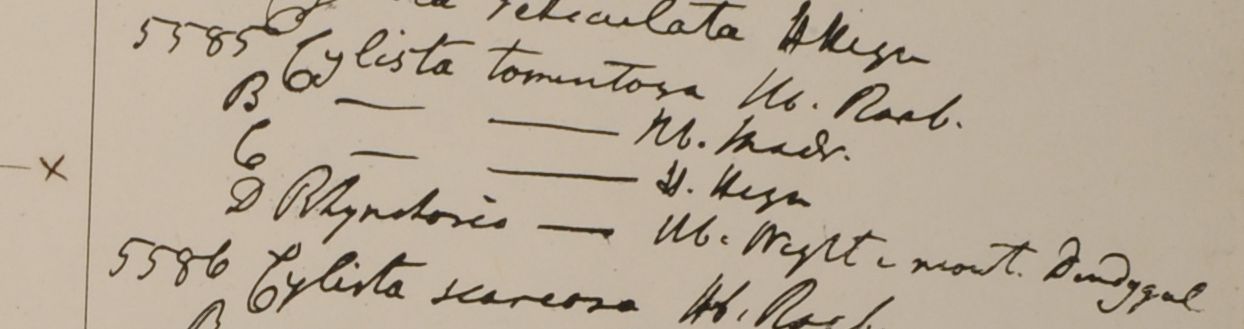 reticulata H Heyn
5585 Cylista tomentosa Hb. Roxb.
B — — Hb. Madr.
C — — H. Heyn
D Rhynchosia — Hb. Wight e mont. Dindygul
5586 Cylista scariosa Hb. Roxb.
B